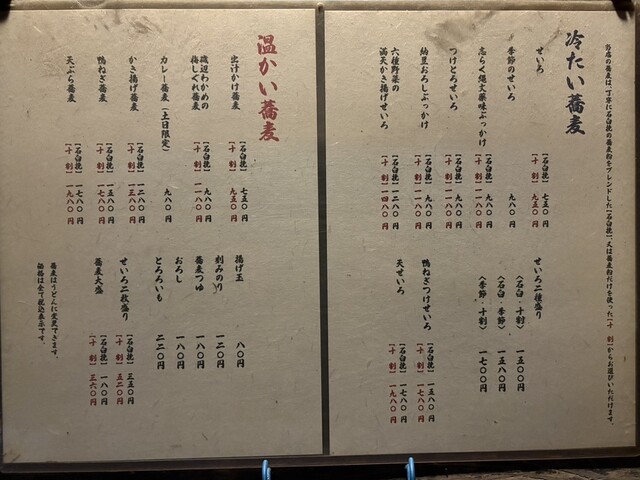 当店の蕎麦は、丁寧に石臼挽の蕎麦粉をブレンドした【石臼挽】、又は蕎麦粉だけを使った【十割】からお選びいただけます。
冷たい蕎麦
せいろ
【石臼挽】七五〇円
【十割】九五〇円
季節のせいろ
九八〇円
志らく縄文薬味ぶっかけ
【石臼挽】九八〇円
【十割】一一八〇円
つけとろせいろ
【石臼挽】九八〇円
【十割】一一八〇円
納豆おろしぶっかけ
【石臼挽】九八〇円
【十割】一一八〇円
六種野菜の
満天かき揚げせいろ
【石臼挽】一二八〇円
【十割】一四八〇円
せいろ二種盛り
〈石臼・十割〉一五〇〇円
〈石臼・季節〉一五八〇円
〈季節・十割〉一七〇〇円
鴨ねぎつけせいろ
【石臼挽】一五八〇円
【十割】一七八〇円
天せいろ
【石臼挽】一七八〇円
【十割】一九八〇円
温かい蕎麦
出汁かけ蕎麦
【石臼挽】七五〇円
【十割】九五〇円
磯辺わかめの
梅しぐれ蕎麦
【石臼挽】九八〇円
【十割】一一八〇円
カレー蕎麦(土日限定)
九八〇円
かき揚げ蕎麦
【石臼挽】一一八〇円
【十割】一三八〇円
鴨ねぎ蕎麦
【石臼挽】一五八〇円
【十割】一七八〇円
天ぷら蕎麦
【石臼挽】一七八〇円
【十割】一九八〇円
揚げ玉
八〇円
刻みのり
一二〇円
蕎麦つゆ
一八〇円
おろし
一八〇円
とろろいも
二二〇円
せいろ二枚盛り
【石臼挽】三五〇円
【十割】五二〇円
蕎麦大盛
【石臼挽】一八〇円
【十割】三六〇円
蕎麦はうどんに変更できます。
価格は全て税込表示です。